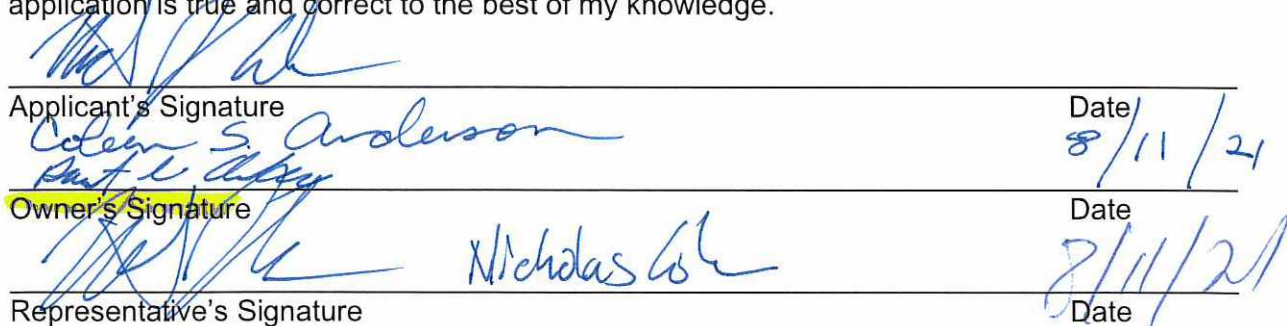 application is true and correct to the best of my knowledge.
Applicant's Signature Date
Coleen S. Anderson 8/11/21
Owner's Signature Date
Nicholas 8/11/21
Representative's Signature Date